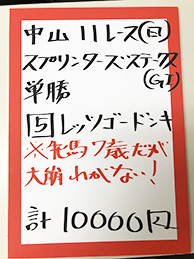 中山11レース(日)
スプリンターズ・ステークス
(GI)
単勝
5 レッツゴードンキ
※牝馬7歳だが
大崩れがない!
計 10000円